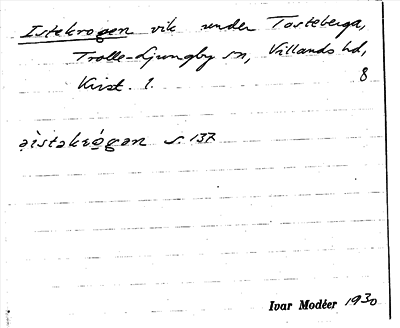 Istekrogen vik under Tosteberga,
Trolle-Ljungby sn, Villands hd,
Krist. l. 8
ạistəkrọ́gən s. 137
Ivar Modéer 1930